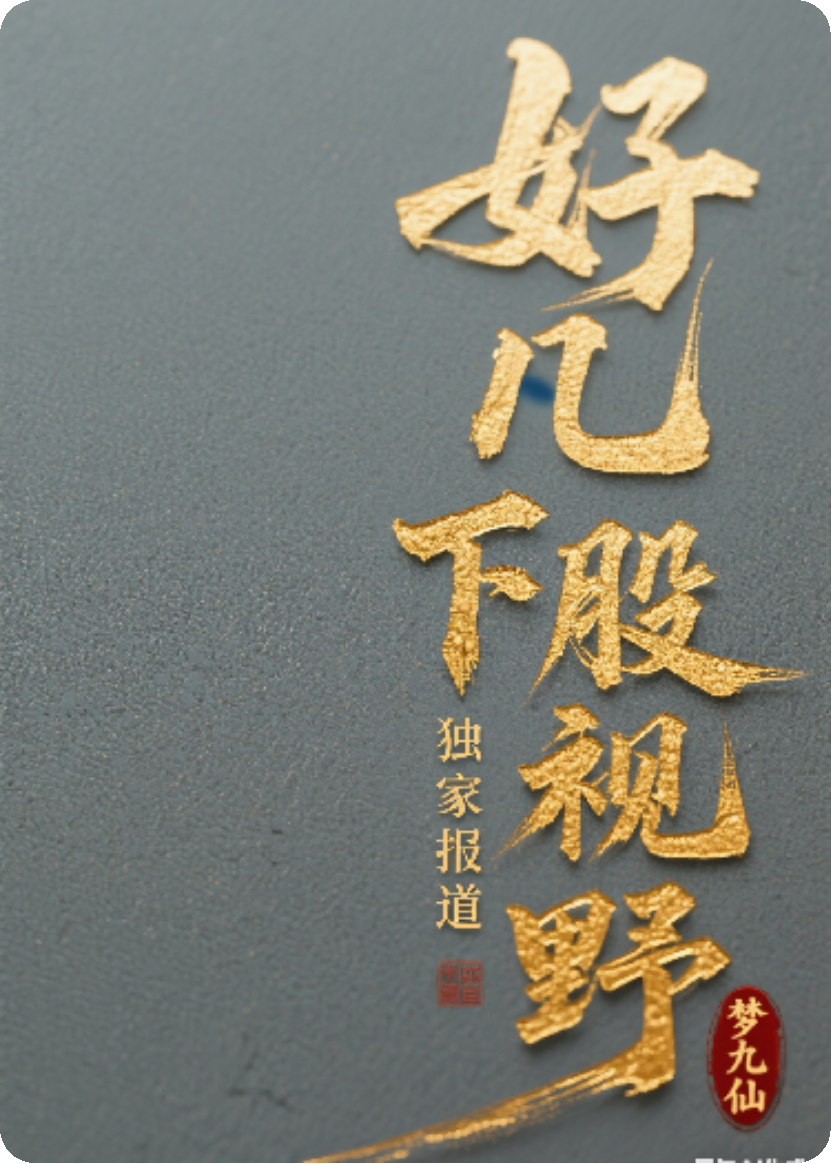 好几下股视野
独家报道
梦九仙